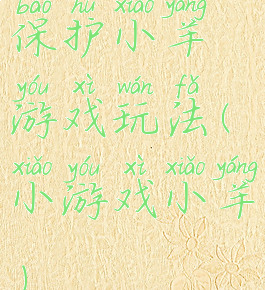 bǎo hù xiǎo yáng
保护小羊
yóu xì wán fǎ
游戏玩法(
xiǎo yóu xì xiǎo yáng
小游戏小羊
)